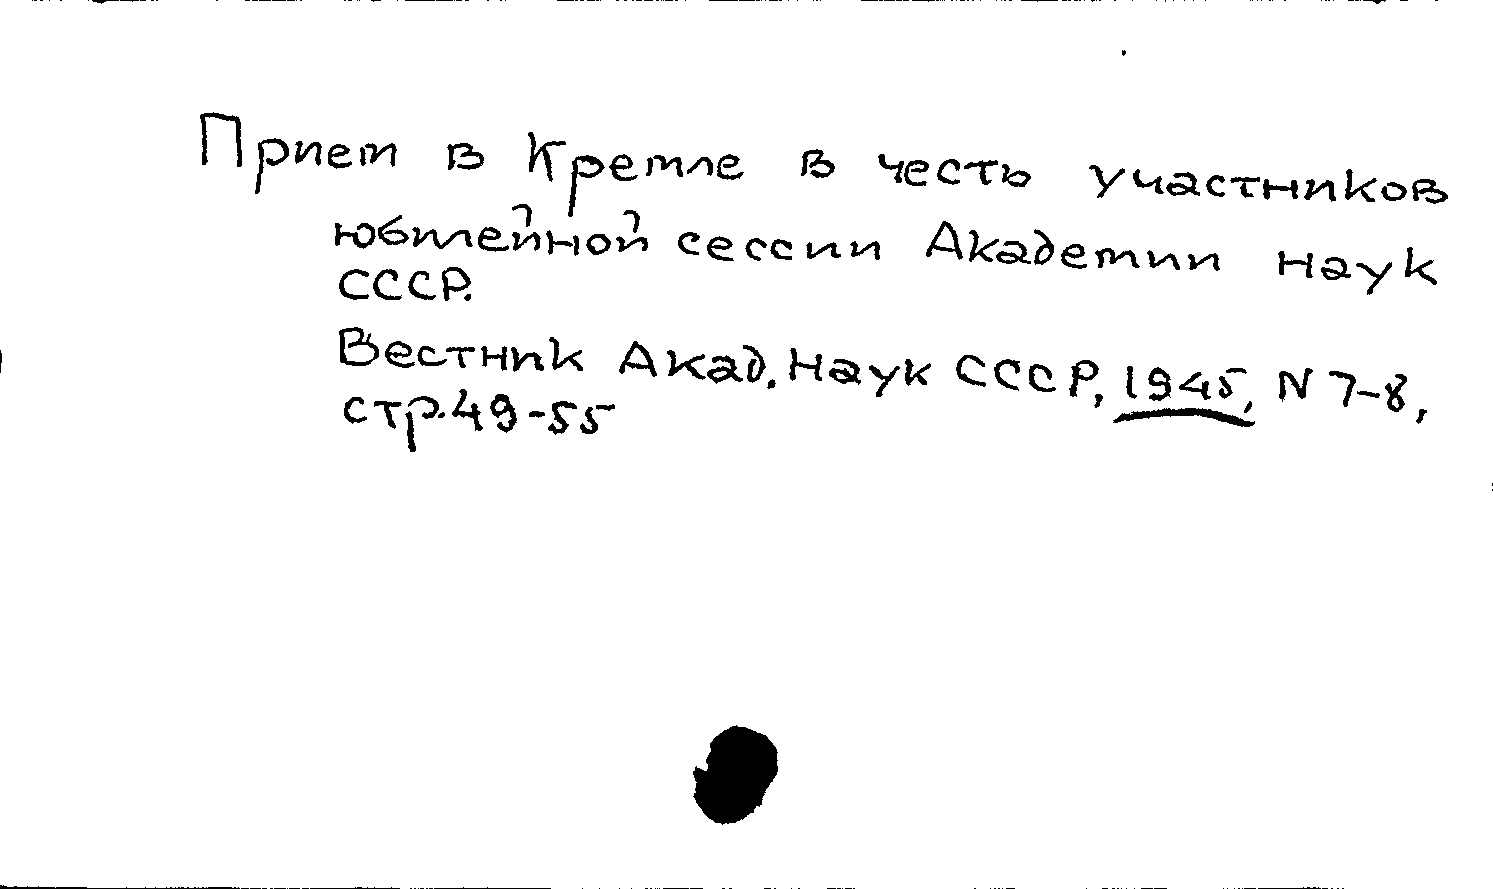 Прием в Кремле в честь участников
юбилейной сессии Академии наук
СССР.
Вестник Акад. Наук СССР, 1945, N 7-8,
стр. 49-55